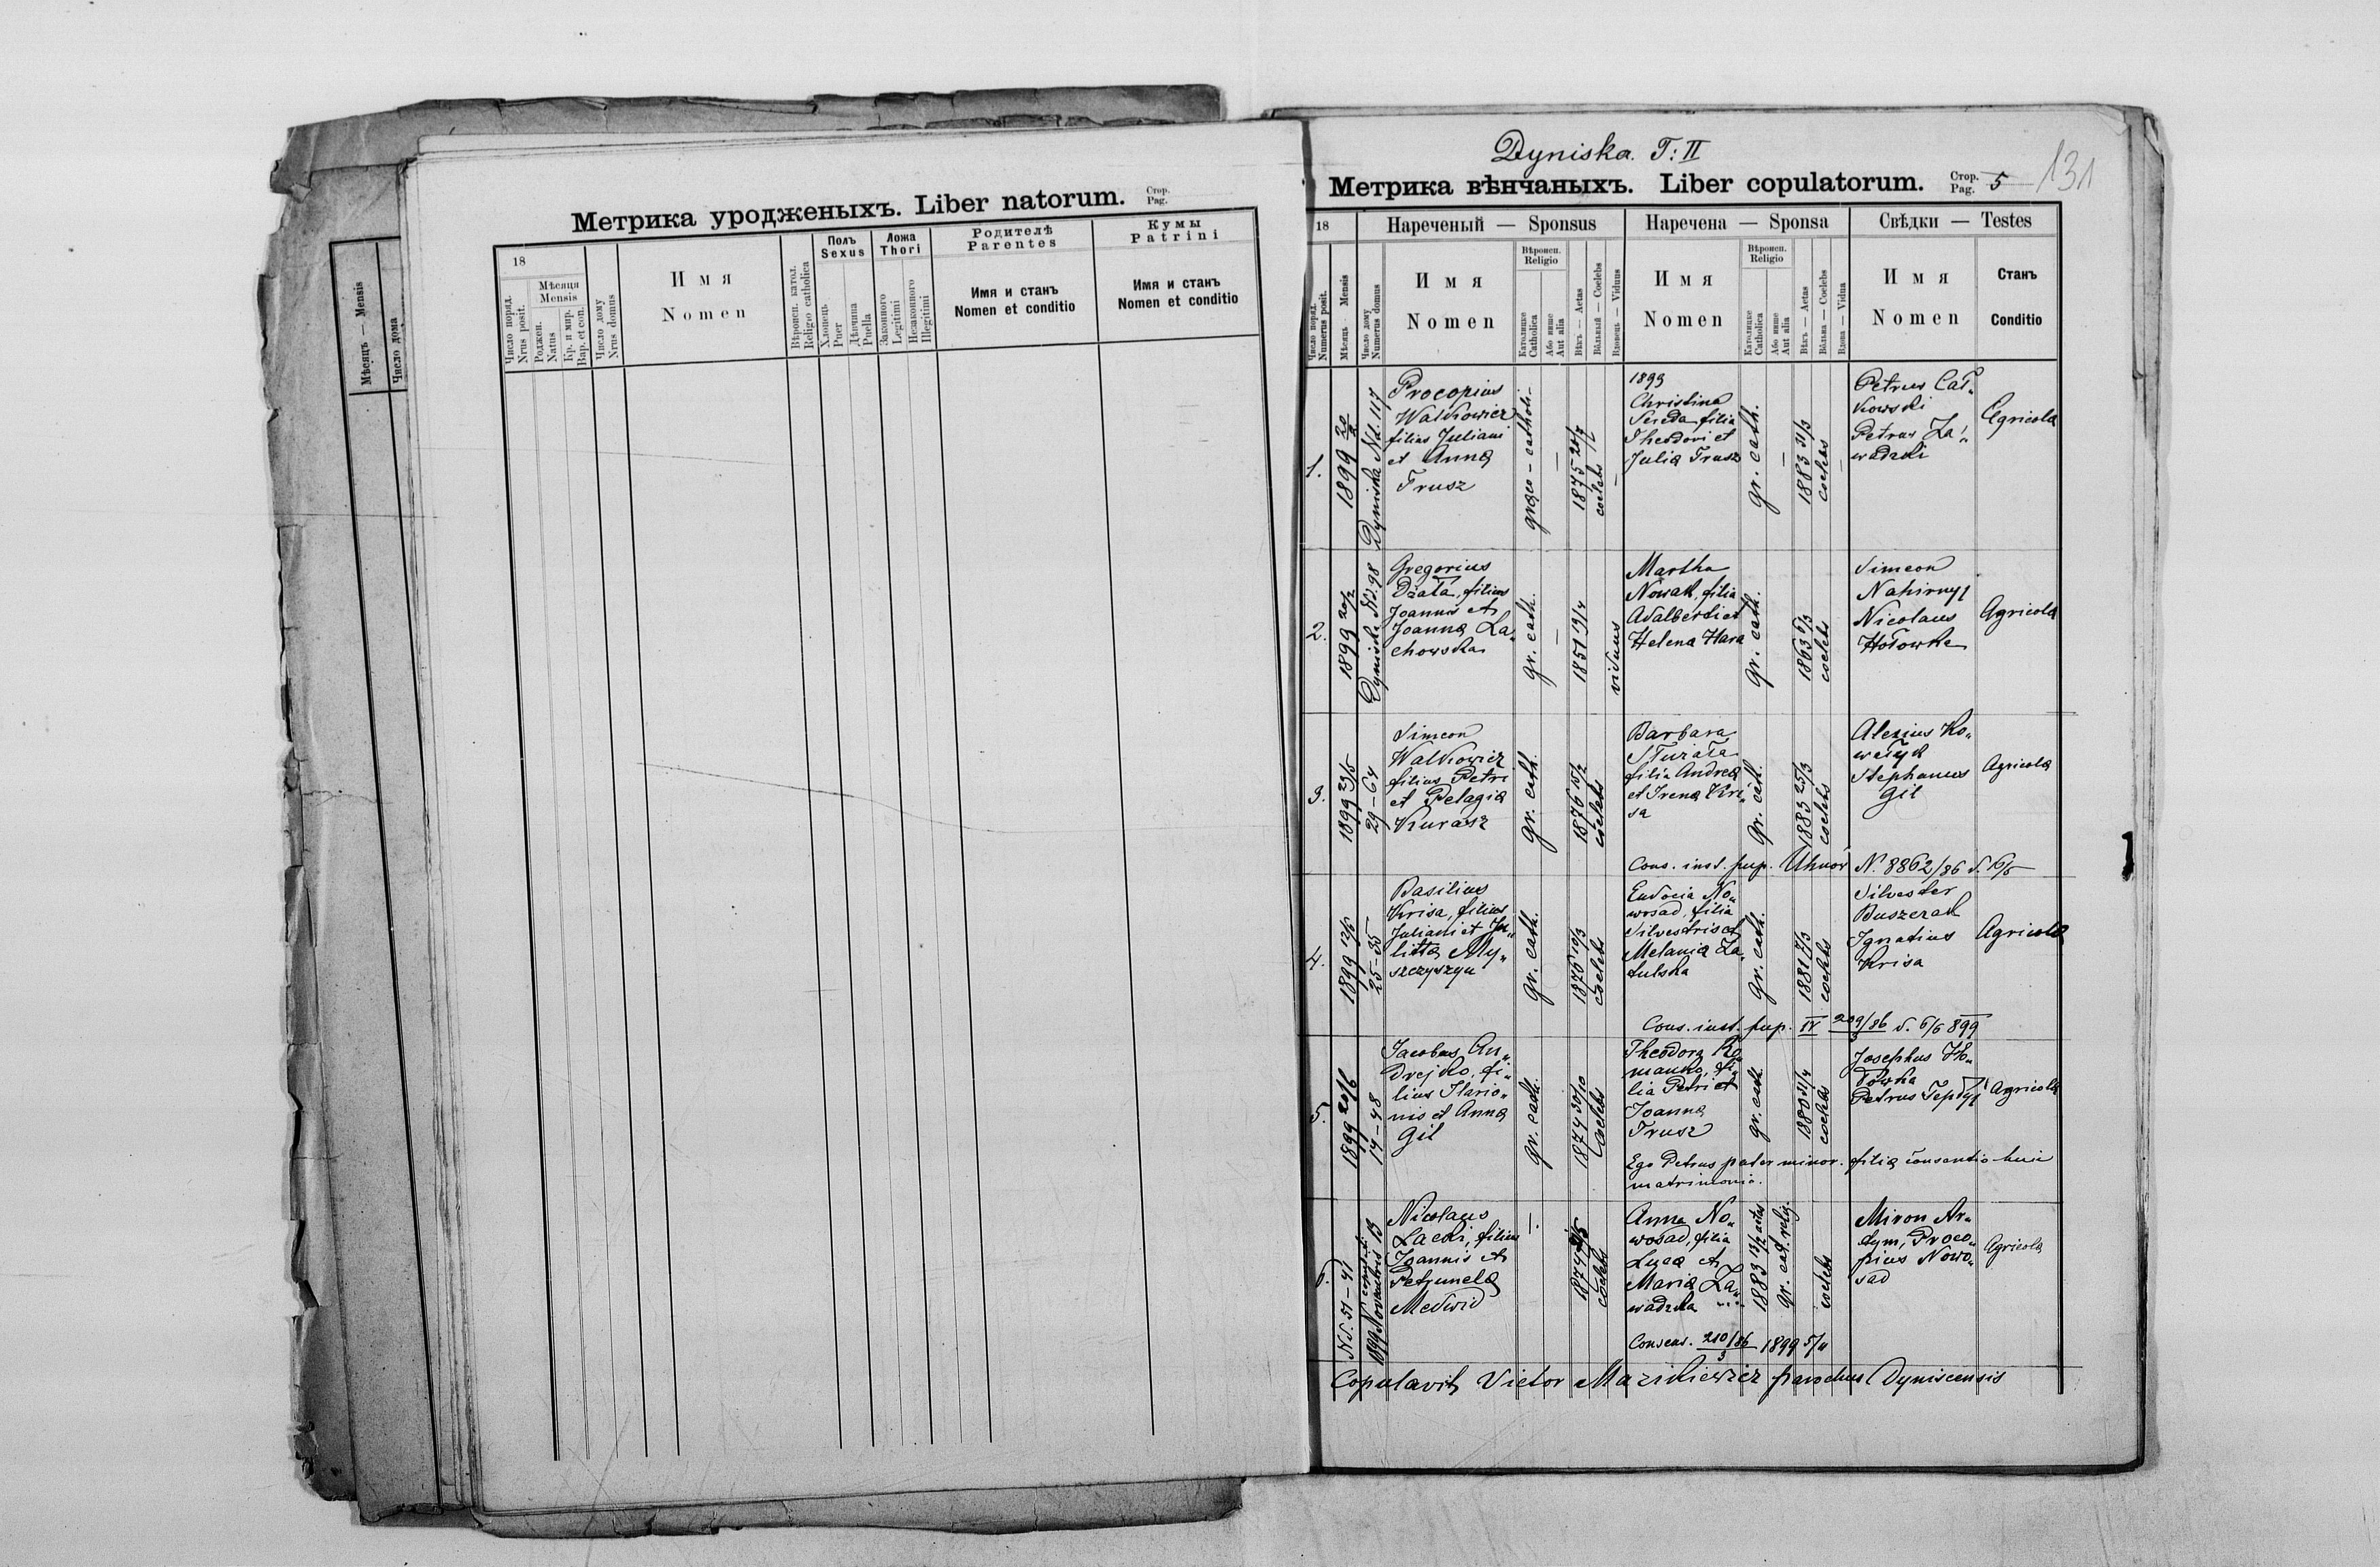 Мѣсяць — Mensis
Число дома
Метрика уродженыхъ. Liber natorum. Стор. Pag.
18
Число поряд. Nrus posit.
Мѣсяця Mensis
Роджен. Natus
Кр. и мир. Bap. et con.
Число дому Nrus domus
Имя
Nomen
Вѣроисп. катол. Religio catholica
Полъ Sexus
Хлопець Puer
Дѣвчина Puella
Ложа Thori
Законного Legitimi
Незаконного Illegitimi
Родителѣ
Parentes
Имя и станъ
Nomen et conditio
Кумы
Patrini
Имя и станъ
Nomen et conditio
Dyniska. T: II
131
Метрика вѣнчаныхъ. Liber copulatorum. Стор. Pag. 5
18
Нареченый — Sponsus
Наречена — Sponsa
Свѣдки — Testes
Число поряд. Numerus posit.
Мѣсяць Mensis
Число дому Numerus domus
Имя
Nomen
Вѣроисп. Religio
Католицке Catholica
Або инше Aut alia
Вѣкъ — Aetas
Вольный — Coelebs
Вдовець — Viduus
Имя
Nomen
Вѣроисп. Religio
Католицке Catholica
Або инше Aut alia
Вѣкъ — Aetas
Вольна — Coelebs
Вдова — Vidua
Имя
Nomen
Станъ
Conditio
1.
1899 20/2
Dyniska Nd. 117
Procopius
Walkowicz
filius Juliani
et Anna
Trusz
graeo-catholi-
1875 20/7
coelebs
1899
Christina
Sereda filia
Theodori et
Julia Trusz
gr. cath.
1883 31/3
coelebs
Petrus Cał„
kowski
Petrus Za„
wadzki
Agricola
2.
1899 20/2
Dyniska Nd. 98
Gregorius
Działa, filius
Joannis et
Joanna La„
chowska
gr. cath.
1851 19/4
viduus
Martha
Nowak, filia
Adalberti et
Helena Hara
gr. cath.
1863 5/3
coelebs
Simeon
Nahirnyj
Nicolaus
Hołowka
Agricola
3.
1899 23/5
29-64
Simeon
Walkowicz
filius Petri
et Pelagia
Kurasz
gr. cath.
1876 15/2
coelebs
Barbara
filia Andrea
et Irena Kri„
sa
gr. cath.
1883 25/3
coelebs
Alexius Ko„
wałyk
Stephanus
Gil
Agricola
Cons. inst. pup. Uhnów N. 8862/86 d. 16/5
4.
1899 12/6
25-35
Basilius
Krisa, filius
Juliani et Ju„
litta My„
szczyszyn
gr. cath.
1876 10/3
coelebs
Eudocia No„
wosad, filia
Silvestris et
Melania Za„
tulska
gr. cath.
1881 7/3
coelebs
Silvester
Buszczak
Ignatius
Krisa
Agricola
Cons. inst. pup. IV 209/86 d. 6/6 899
3
5.
1899 20/6
14-48
Jacobus An„
drejko, fi„
lius Ilario„
nis et Anna
Gil
gr. cath.
1874 30/10
Coelebs
Theodora Ro„
manko, fi„
lia Petri et
Joanna
Trusz
gr. cath.
1880 31/4
coelebs
Josephus Ho„
łowka
Petrus Tepłyj
Agricola
Ego Petrus pater minor. filia consentio huic
matrimonio.
6.
Nd. 51-41
1899 Novembris 13
Nicolaus
Lacki, filius
Joannis et
Petrunela
Medwid
coelebs
Anna No„
wosad, filia
Luca et
Maria Za„
wadzka
1883 13/2 aetas
gr. cat. relig.
coelebs
Miron Ar„
tym, Proco„
pius Nowo„
sad
Agricola
Consens. 210/86 1899 5/11
3
Copulavit Victor Mazikiewicz parochus Dyniscensis